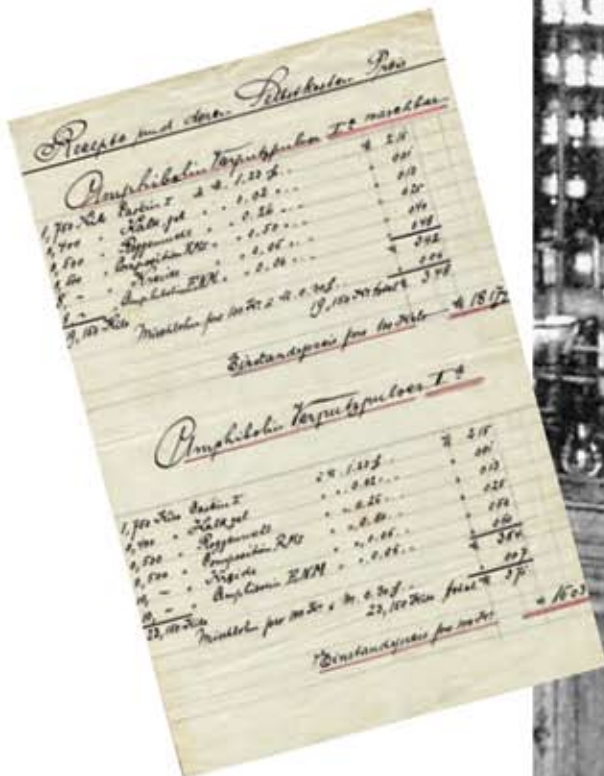 Rezepte und deren Selbstkosten Preis
Amphibolin Verputzpulver I.a waschbar
1,750 Kilo Casein I à M. 1.23 M 2.15
0,400 " Kalk gel. " " 0.02 " 001
0,500 " Roggenmehl " " 0.26 " 0.13
0,500 " Composition RKO " " 0.50 " 0.25
8, – " Kreide " " 0.05 " 0.40
8 – " " 0.06 " 0.48
19,150 Kilo M 3.42
Mischlohn pro 100 Ko. à M. 0.30 0.06
19,150 Ko total M 3.48
Einstandspreis pro 100 Kilo M 18.17
Amphibolin Verputzpulver I.a
1,750 Kilo Casein I à M. 1.23 M 2.15
0,400 " Kalk gel. " " 0.02 " 001
0,500 " Roggenmehl " " 0.26 " 0.13
0,500 " Composition RKO " " 0.50 " 0.25
10, – " Kreide " " 0.05 " 0.50
10, – " " 0.06 " 0.60
23,150 Kilo M 3.64
Mischlohn pro 100 Ko. à M. 0.30 007
23,150 Kilo total M 3.71
Einstandspreis pro 100 Ko. M 16.03